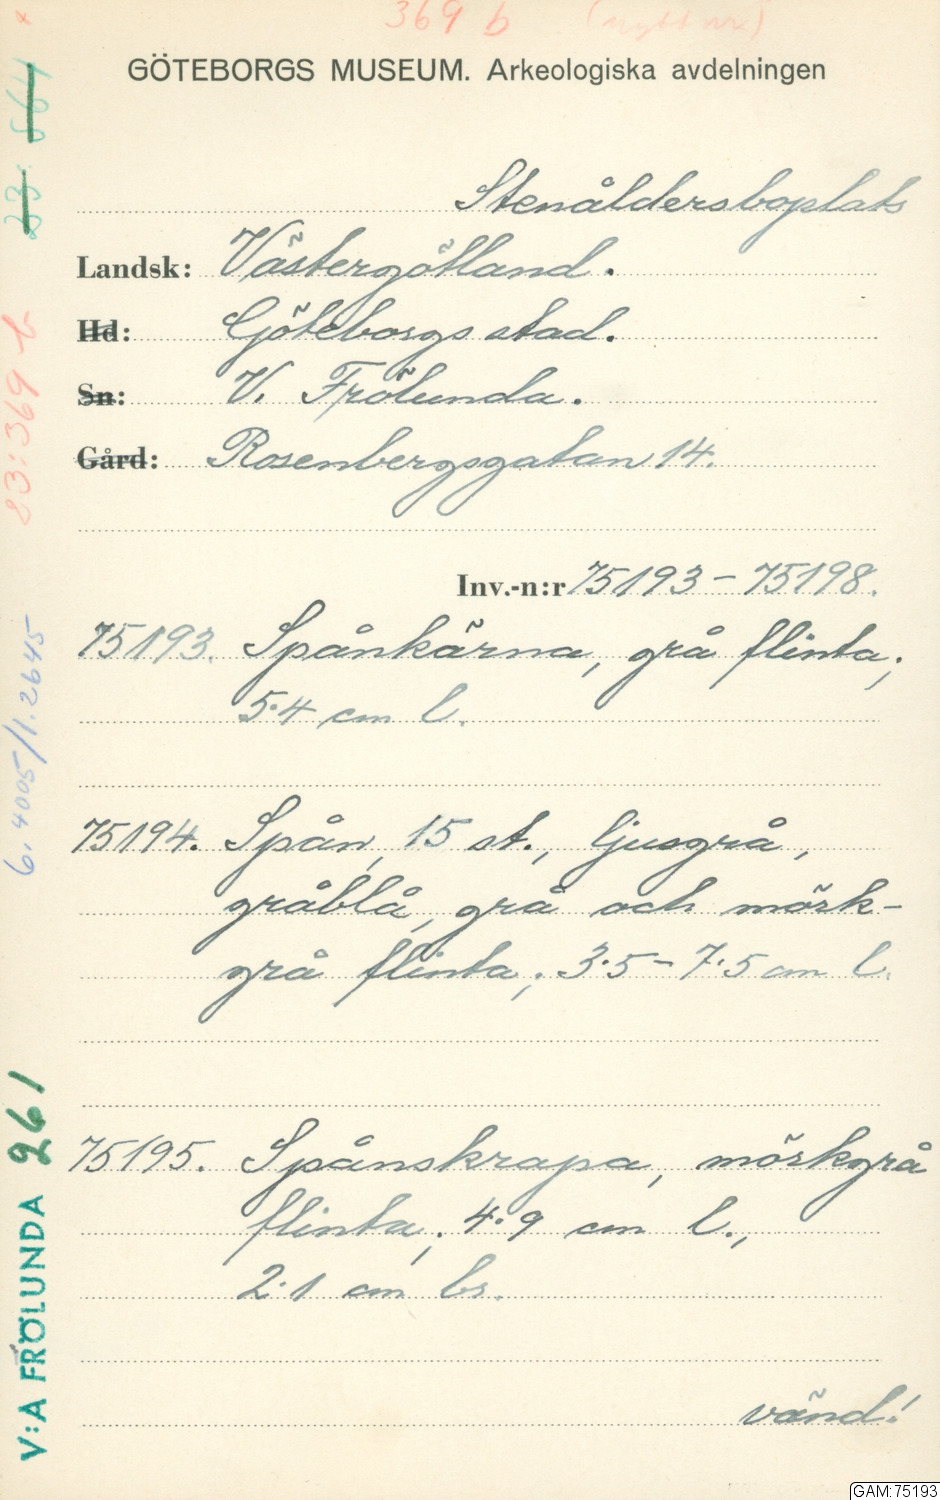 369 b (nyttnr)
GÖTEBORGS MUSEUM. Arkeologiska avdelningen
Stenåldersboplats
Landsk: Västergötland.
Hd: Göteborgs stad.
Sn: V. Frölunda.
Gård: Rosenbergsgatan 14.
Inv.-n:r 75193 – 75198.
75193. Spånkärna, grå flinta;
5·4 cm l.
75194. Spån, 15 st., ljusgrå,
gråblå, grå och mörk-
grå flinta; 3·5 – 7·5 cm l.
75195. Spånskrapa, mörkgrå
flinta; 4·9 cm l.,
2·1 cm br.
vänd!
23: 564
83:369 b
6.4005/1.2645
V:A FRÖLUNDA 261
GAM:75193